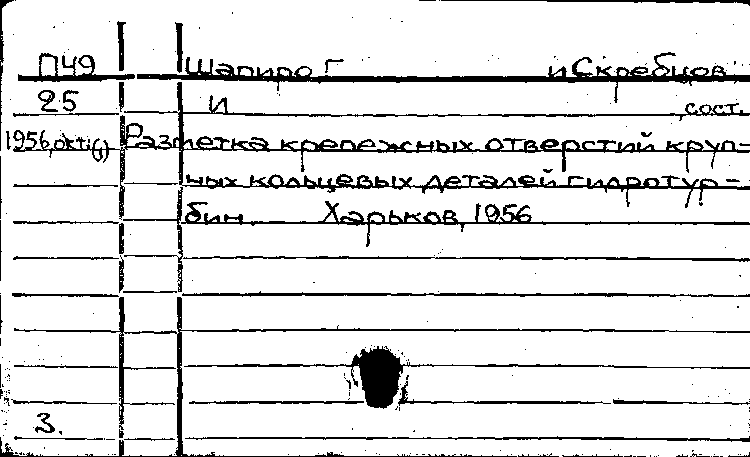 П49 Шапиро, Г и Скребцов,
25 И ,сост.
1956, окт.() Разметка крепежных отверстий круп-
ных кольцевых деталей гидротур-
бин. Харьков, 1956
3.